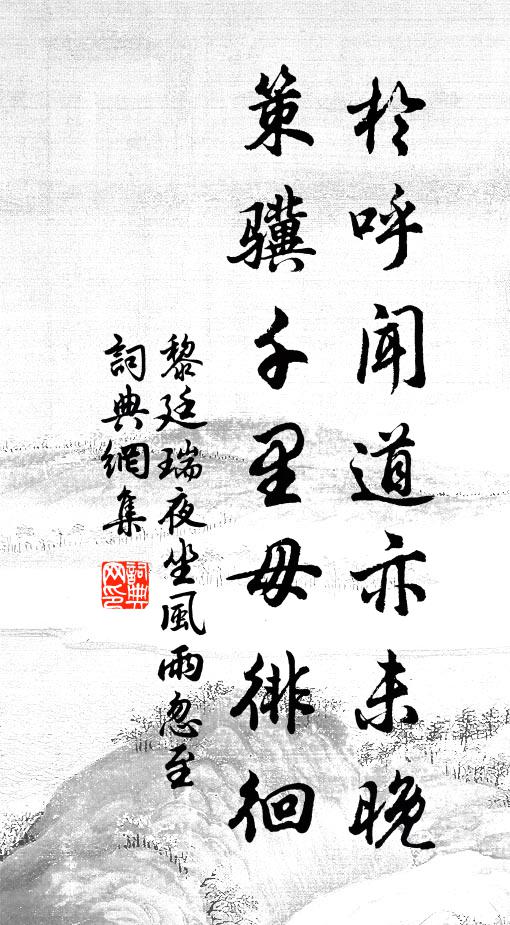 於呼聞道亦未晚
策驥千里毋徘徊
黎廷瑞夜坐風雨忽至
詞典網集
詞典網印